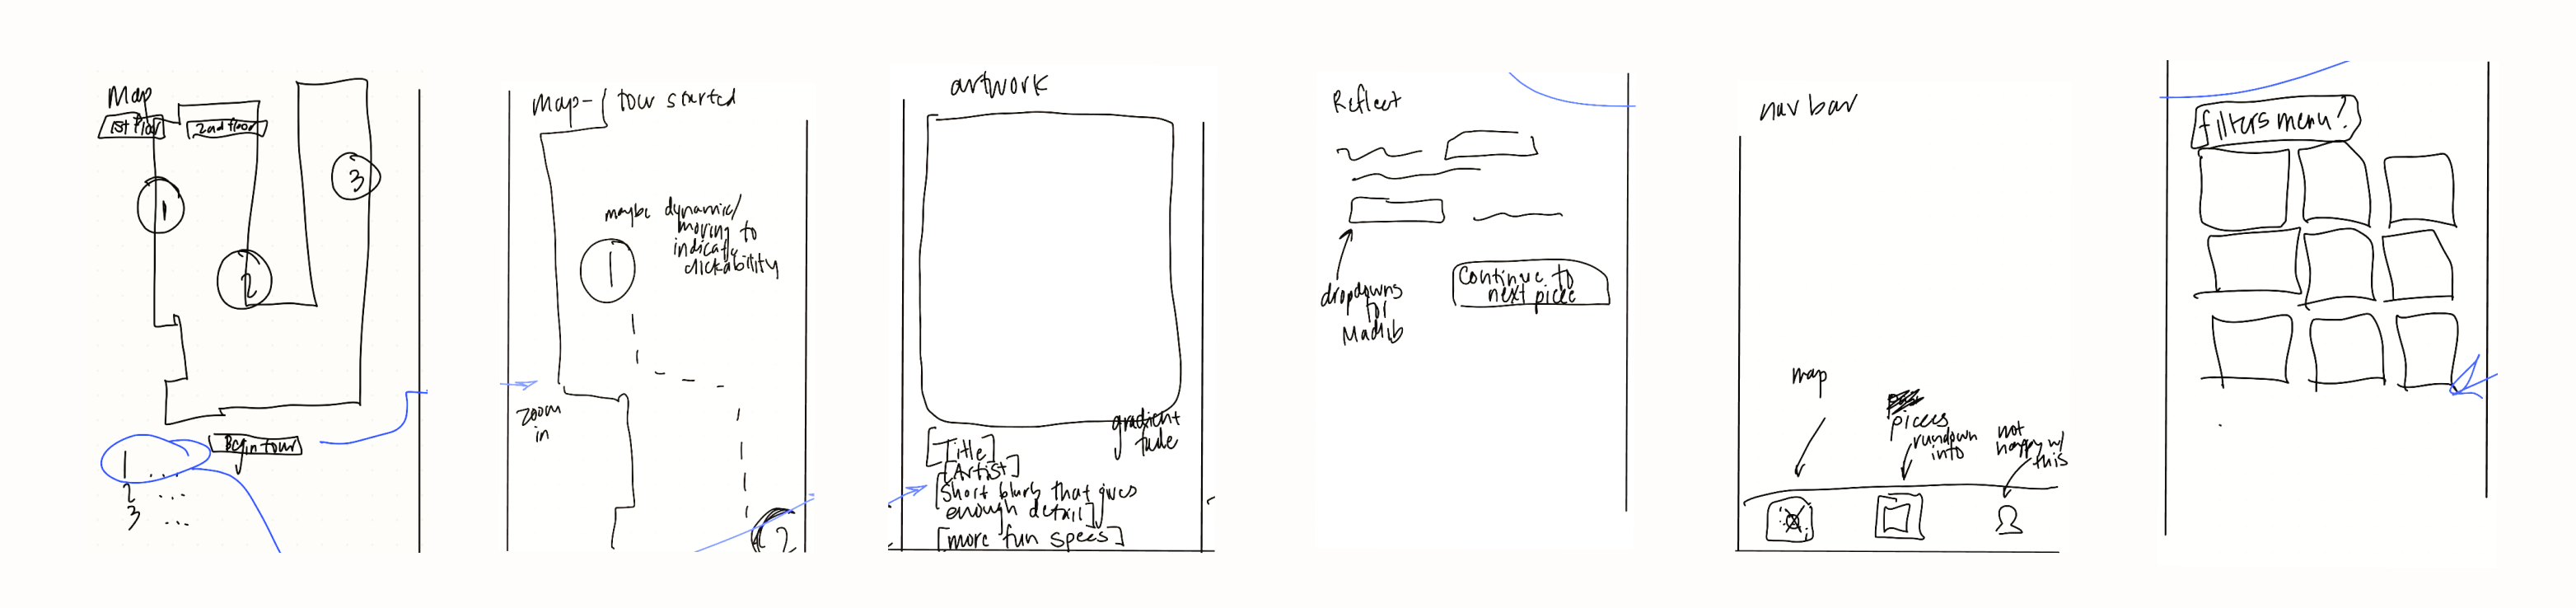 Map
1st floor
2nd floor
1
2
3
Begin tour
1 ...
2 ...
3 ...
Map - tour started
maybe dynamic/
moving to
indicate
clickability
1
zoom
in
2
artwork
gradient
fade
[Title]
[Artist]
[Short blurb that gives
enough detail]
[more fun specs]
Reflect
Continue to
next piece
dropdowns
for
Madlib
nav bar
map
pieces
rundown
info
not
happy w/
this
filters menu?